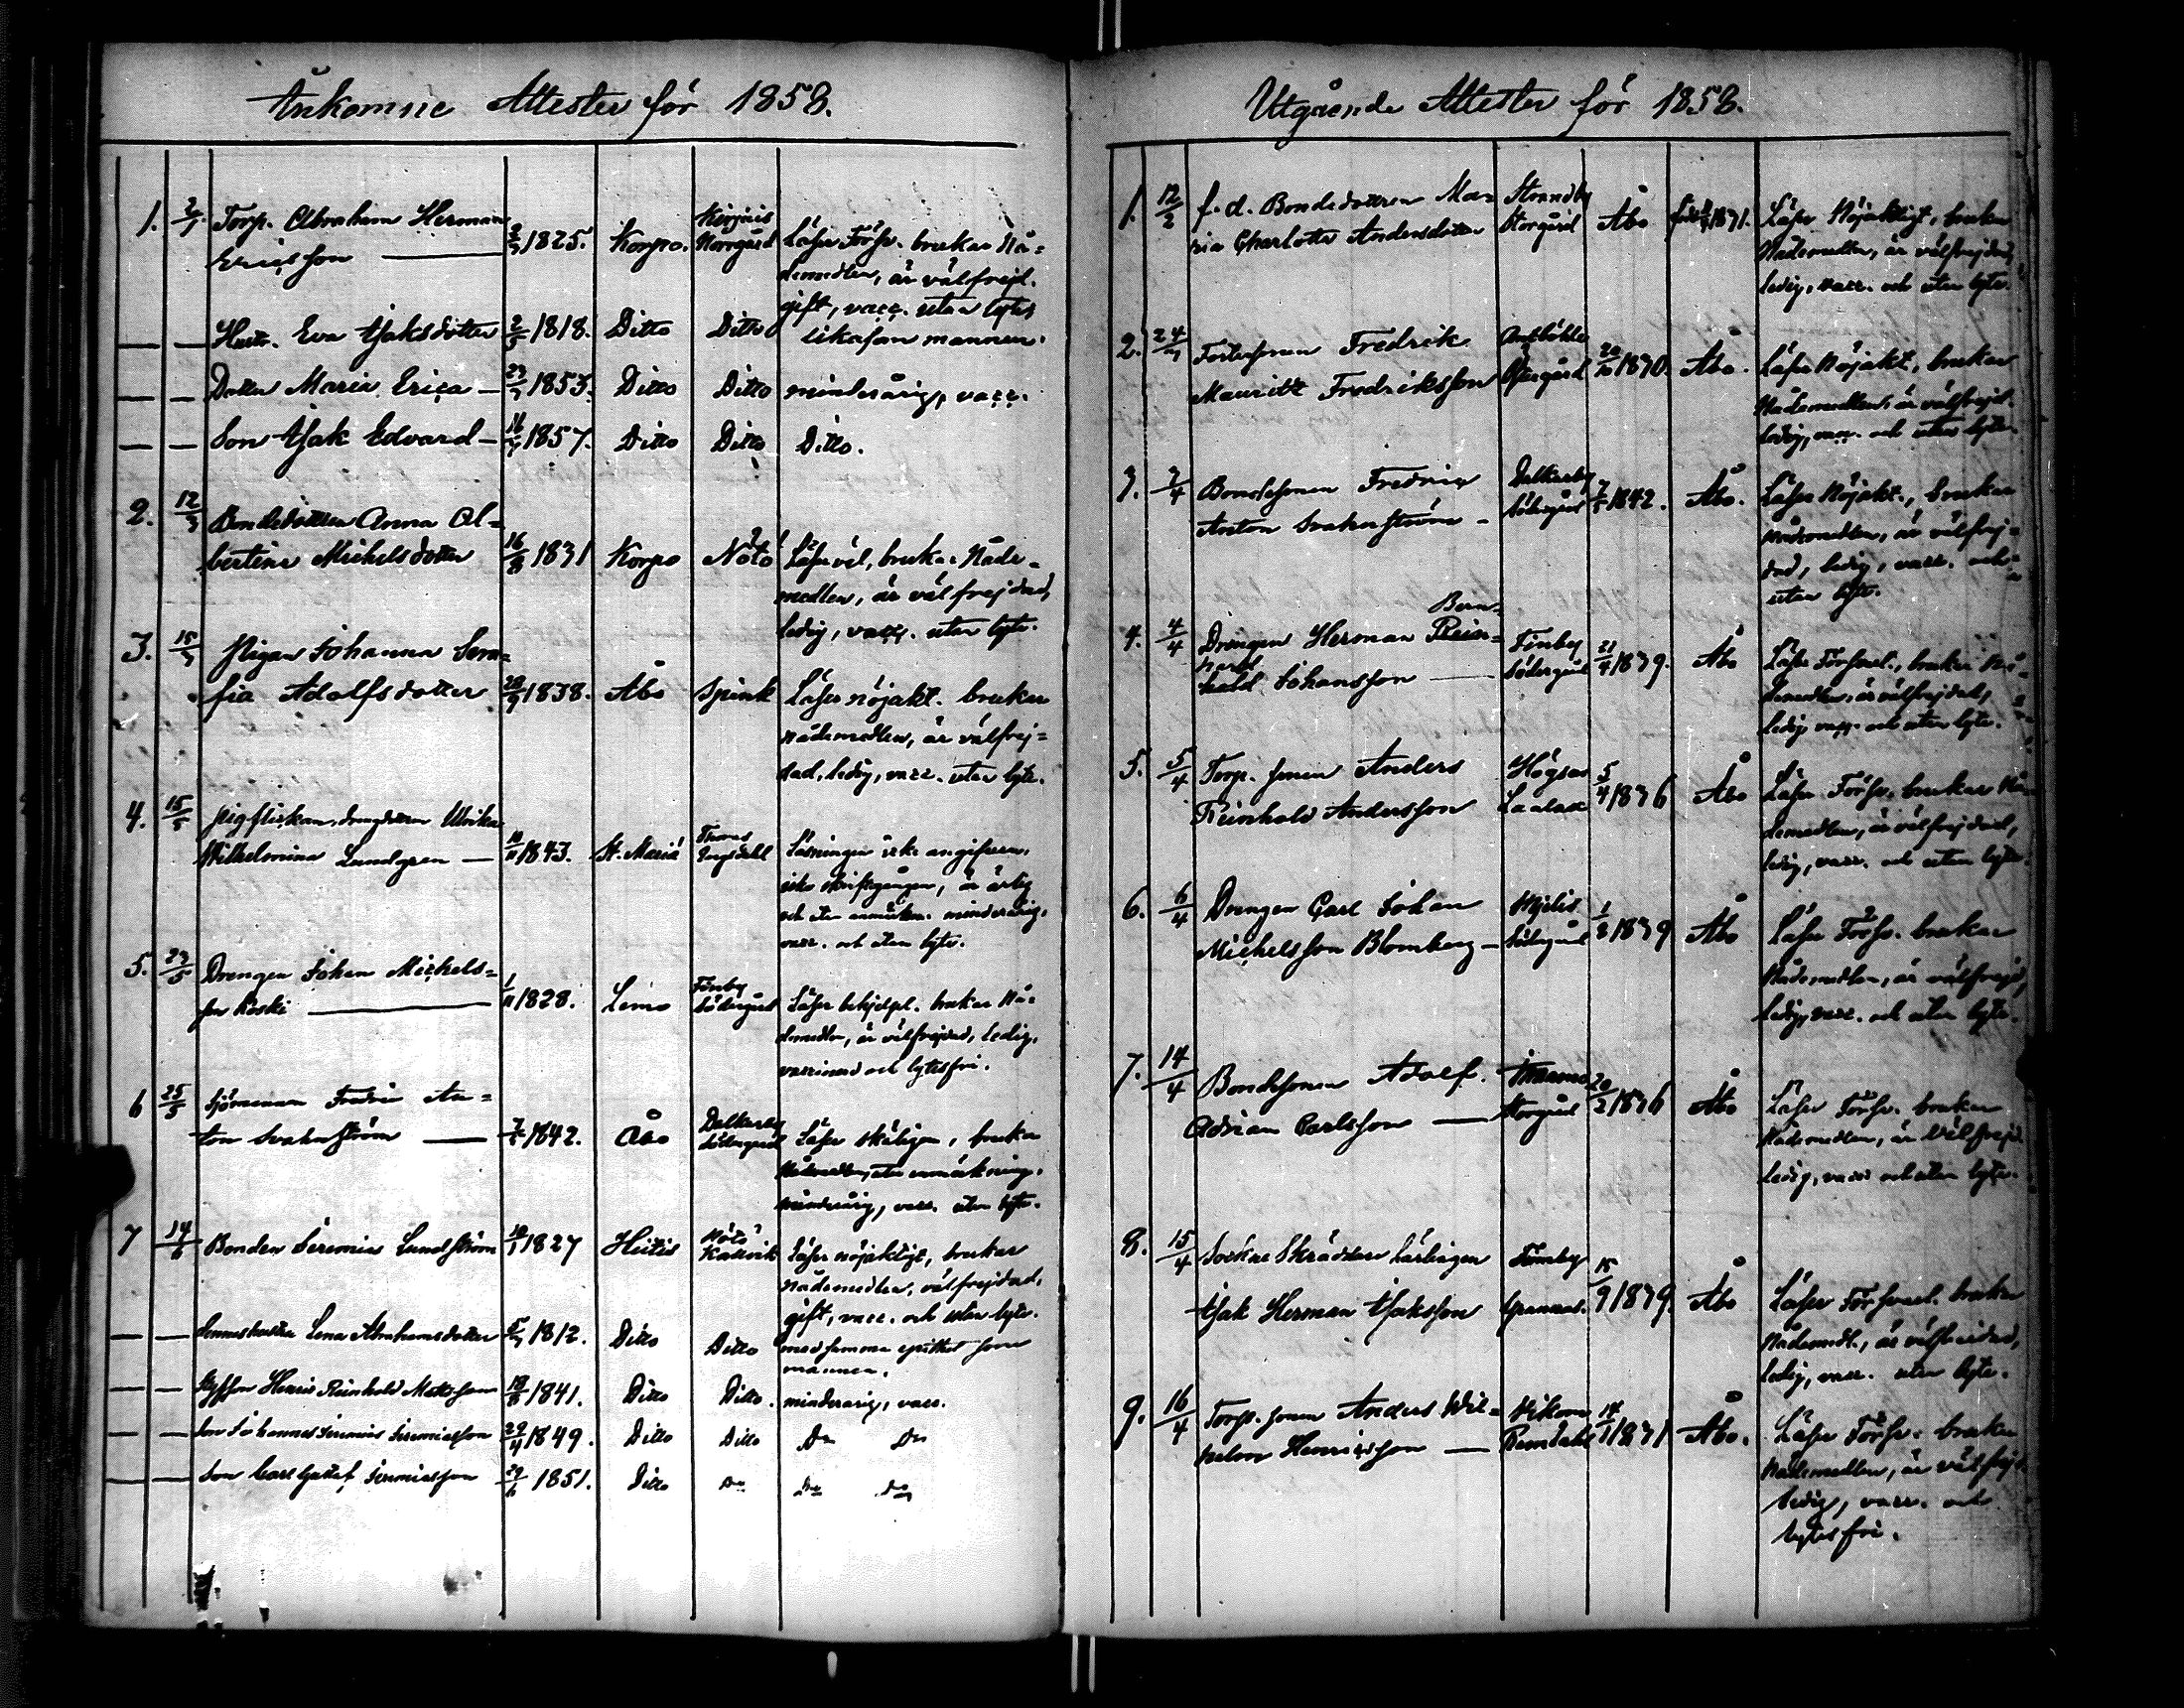 Ankomne Attester för 1858.
1. 2/1. Torp. Abraham Herman
Ericsson — 1825. Korpo. Norrgård Läser Försv. brukar Nå=
demedlen, är välfrejd.
gift, vacc. utan lyte,
— — Hustr. Eva Isaksdotter 1818. Ditto Ditto likasom mannen.
— — Dotter Maria Erica — 1853. Ditto Ditto minderårig, vacc.
— — Son Isak Edvard — 1857. Ditto Ditto Ditto.
2. 12/3 Bondedottren Anna Al=
bertina Michelsdotter 16/8 1831 Korpo Nötö Läser väl, brukar Nåde=
medlen, är välfrejdad,
ledig, vacc. utan lyte.
3. 15/3 Pigan Johanna Sera=
fia Adolfsdotter 1838. Åbo Spink Läser nöjakt. brukar
nådemedlen, är välfrej=
dad, ledig, vacc. utan lyte.
4. 15/5 Pigflickan, Ulrika
Wilhelmina Lundgren — 1843. St. Mariæ Läsningen icke angifven,
icke skriftgången, är ärlig
och utan anmärkn. minderårig,
vacc. och utan lyte.
5. 23/5 Drengen Johan Michels=
son — 1/11 1828. Lemo Finby Södergård Läser brukar Nå=
demedlen, är välfrejdad, ledig,
vaccinerad och lytesfri.
6 25/5 Sjömannen Fredric An=
ton Svahnström — 1842. Åbo Dalkarby Södergård Läser skäligen, brukar
Nådemedlen, utan anmärkning,
minderårig, vacc. utan lyte.
7 14/6 Bonden Jeremias Lundström 1827 Hitis Nötö Läser nöjaktigt, brukar
nådemedlen, välfrejdad,
gift, vacc. och utan lyte.
— — Dennes hustru Lena Abrahamsdotter 1812. Ditto Ditto med samma epithet som
mannen.
— — Styfson Henric Reinhold Mattsson 1841. Ditto Ditto. minderårig, vacc.
— — Son Johannes Jeremias Jeremiasson 29/4 1849. Ditto Ditto Do Do
— — Son Carl Gustaf Jeremiasson 1851. Ditto Do Do Do
Utgående Attester för 1858.
1. 12/2 f. d. Bondedottren Ma= Strandby
ria Charlotta Andersdotter Storgård Åbo 1831. Läser Nöjaktigt, brukar
Nådemedlen, är välfrejdad,
ledig, vacc. och utan lyte.
2. 24/3 Fosterson Fredrik
Mauritz Fredriksson Östergård 1830. Åbo. Läser Nöjakt., brukar
Nådemedlen, är välfrejd.
ledig, vacc. och utan lyte.
3. Bondesonen Fredric Dalkarby
Anton Svahnström — Södergård 1842. Åbo. Läser Nöjakt., brukar
nådemedlen, är välfrej=
dad, ledig, vacc. och
utan lyte.
Bern=
4. 4/4 Drengen Herman Rein= Finby
hard
hold Johansson — Södergård 21/4 1839. Åbo Läser Försvarl., brukar Nå=
demedlen, är välfrejdad,
ledig, vacc. och utan lyte.
5. 5/4 Torp. sonen Anders Högsar
Reinhold Andersson 5/4 1836 Åbo Läser Försv. brukar Nå=
demedlen, är välfrejdad,
ledig, vacc. och utan lyte.
6. 6/4 Drengen Carl Johan
Michelsson Blomberg — Södergård 1839 Åbo Läser Försv. brukar
Nådemedlen, är välfrejd,
ledig, vacc. och utan lyte.
7. 14/4 Bondesonen Adolf
Adrian Carlsson — Storgård 20/2 1836 Åbo Läser Försv. brukar
Nådemedlen, är välfrejd.
ledig, vacc. och utan lyte.
8. 15/4 Sockne Skräddare Lärlingen Finnby
Isak Herman Isaksson Grannas. 15/9 1839. Åbo Läser Försvarl. brukar
Nådemedl., är välfrejdad,
ledig, vacc. utan lyte.
9. 16/4 Torp. sonen Anders Wil=
helm Henricsson — 1831 Åbo. Läser Försv. brukar
Nådemedlen, är välfrejd.
ledig, vacc. och
lytesfri.